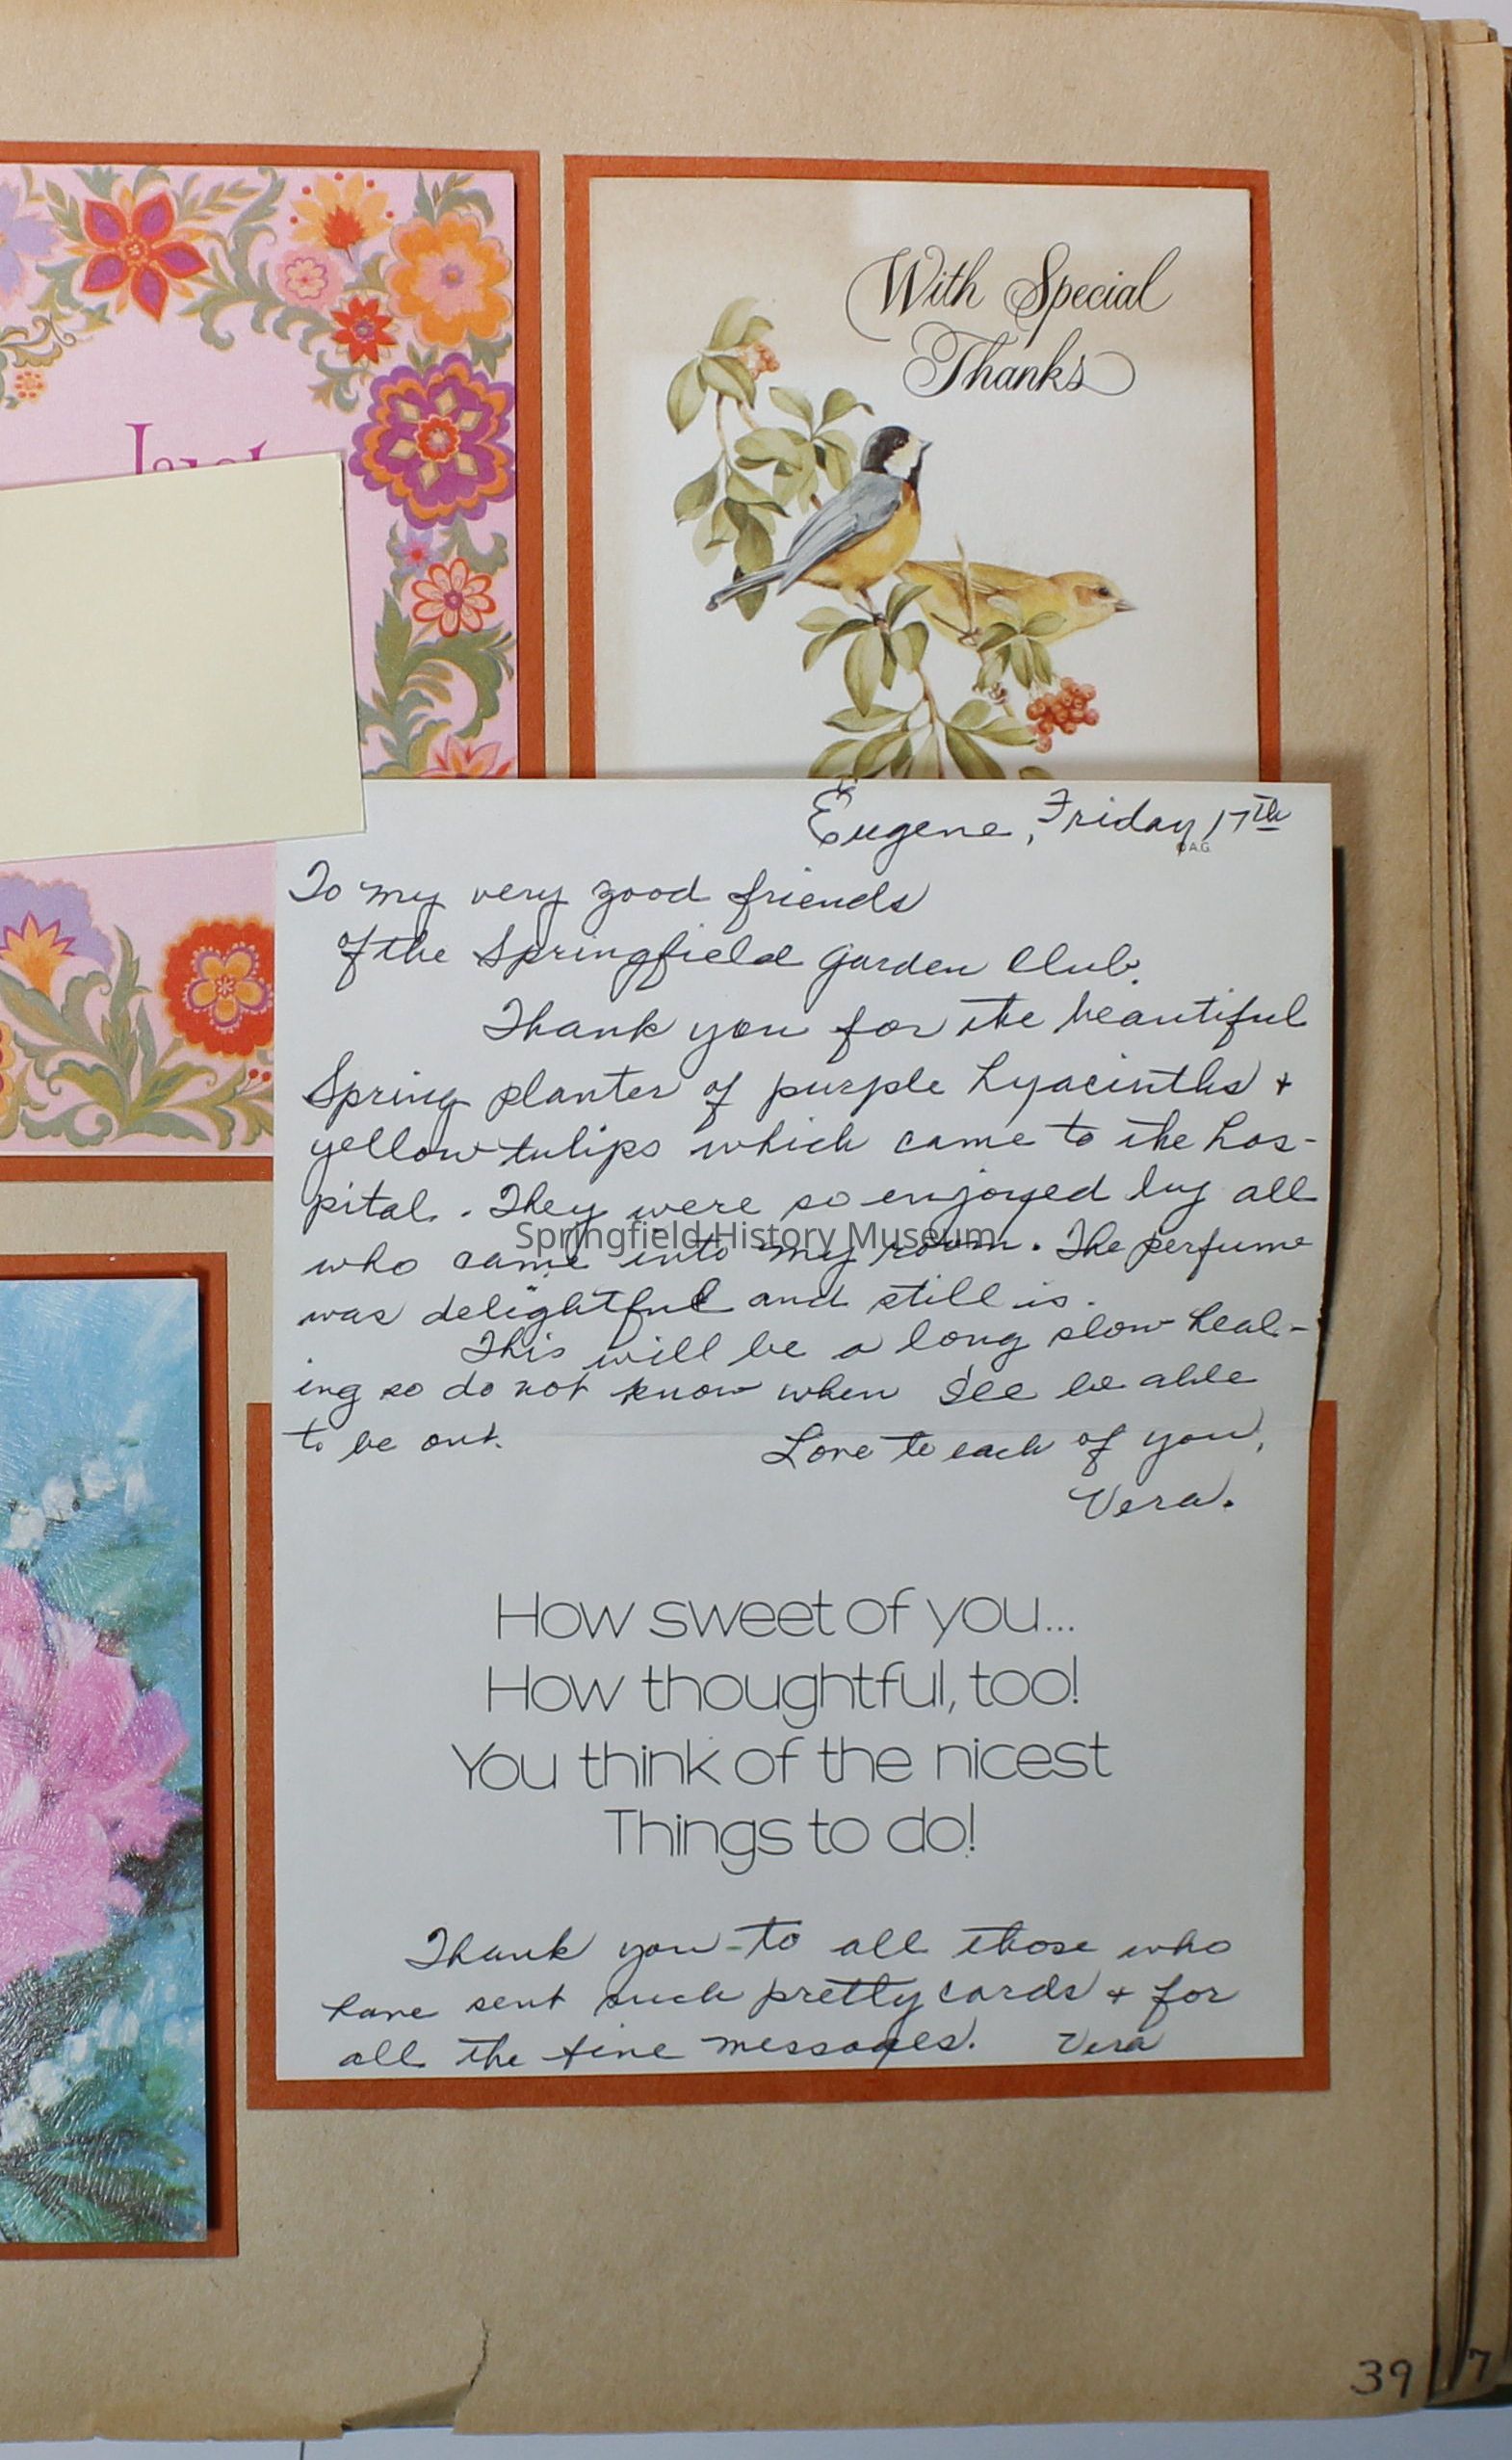 Just
With Special
Thanks
Eugene, Friday 17th
© A.G.
To my very good friends
of the Springfield Garden Club.
Thank you for the beautiful
Spring planter of purple hyacinths +
yellow tulips which came to the hos-
pital. They were so enjoyed by all
who came into my room. The perfume
was delightful and still is.
This will be a long slow heal-
ing so do not know when I'll be able
to be out.
Love to each of you,
Vera.
How sweet of you...
How thoughtful, too!
You think of the nicest
Things to do!
Thank you - to all those who
have sent such pretty cards + for
all the fine messages. Vera
Springfield History Museum
39
7